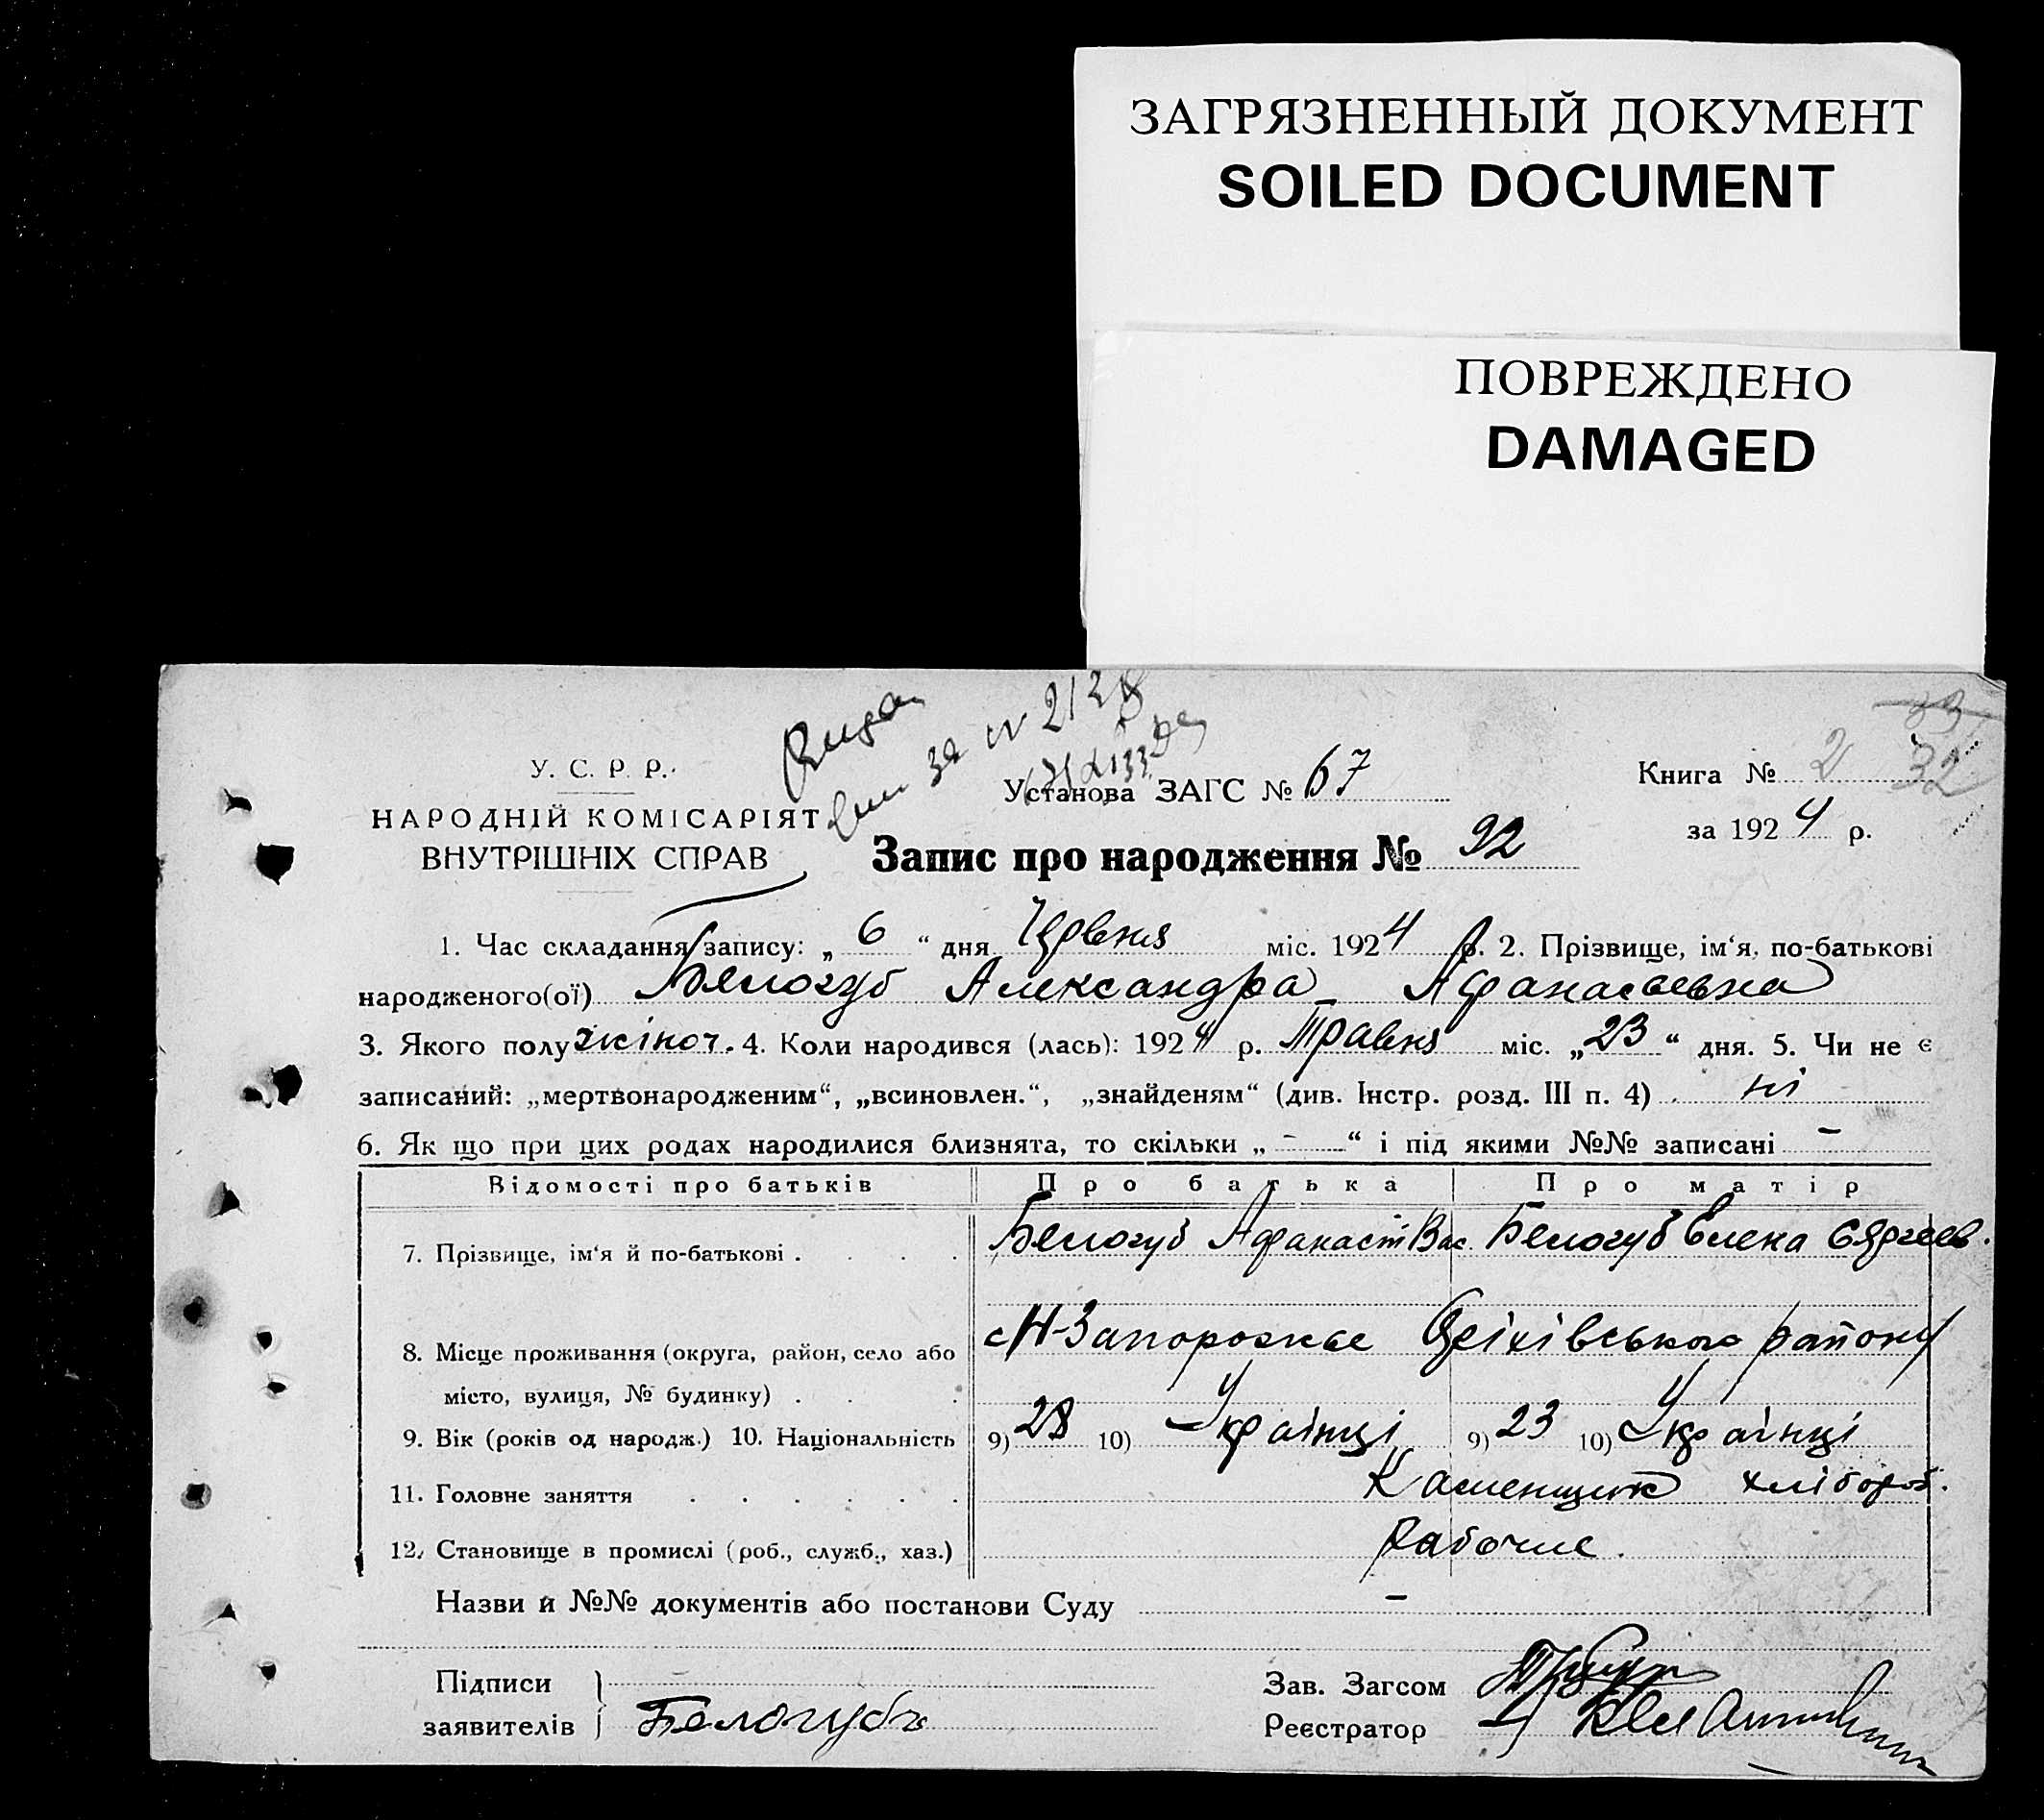 ЗАГРЯЗНЕННЫЙ ДОКУМЕНТ
SOILED DOCUMENT
ПОВРЕЖДЕНО
DAMAGED
33
32
У. С. Р. Р.
НАРОДНІЙ КОМІСАРІЯТ
ВНУТРІШНІХ СПРАВ
Установа ЗАГС № 67
Книга № 2
за 1924 р.
Запис про народження № 92
1. Час складання запису: „ 6 “ дня Червня міс. 1924 р. 2. Прізвище, ім‘я, по-батькові
народженого(ої) Белогуб Александра Афанасьевна
3. Якого полу жіноч. 4. Коли народився (лась): 1924 р. Травня міс. „23“ дня. 5. Чи не є
записаний: „мертвонародженим“, „всиновлен.“, „знайденям“ (див. Інстр. розд. III п. 4) ні
6. Як що при цих родах народилися близнята, то скільки „ - “ і під якими №№ записані -
Відомості про батьків Про батька Про матір
7. Прізвище, ім‘я й по-батькові . . . . Белогуб Афанасий Вас. Белогуб Елена Сергеев.
8. Місце проживання (округа, район, село або с Н-Запорожье Оріхівського району
місто, вулиця, № будинку) . . .
9. Вік (років од народж.) 10. Національність 9) 28 10) Українці 9) 23 10) Українці
11. Головне заняття . . . . . . Каменщик хлібороб.
12. Становище в промислі (роб., служб., хаз.) Рабочие.
Назви й №№ документів або постанови Суду -
Підписи
заявителів } Белогубъ
Зав. Загсом
Реєстратор